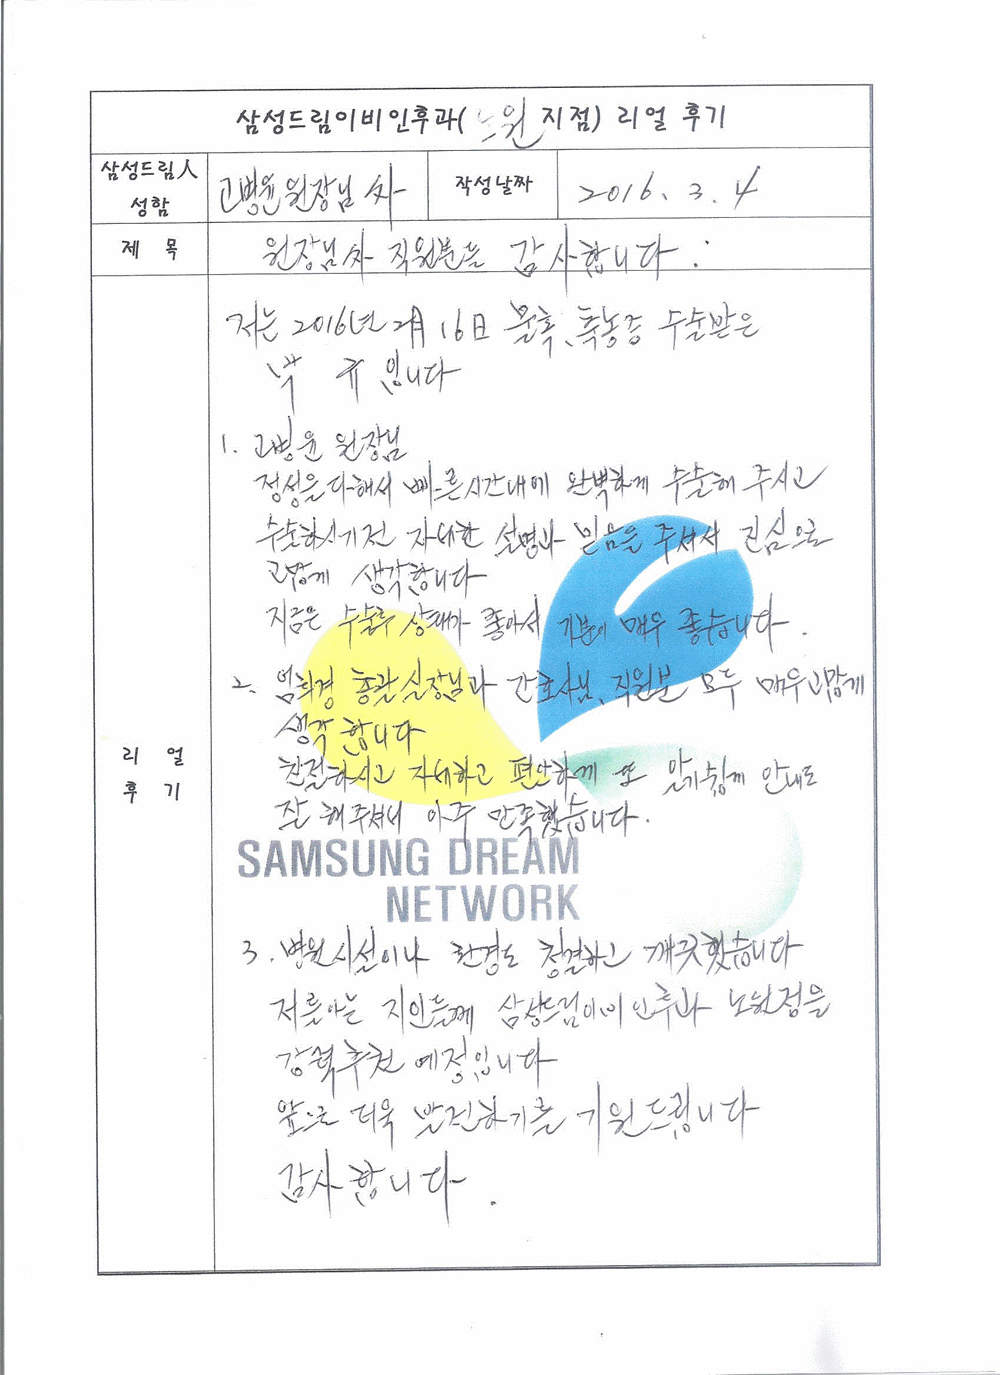 삼성드림이비인후과( 노원 지점) 리얼 후기
삼성드림人 성함
고병윤 원장님 外
작성날짜
2016. 3. 4
제 목
원장님外 직원분들 감사합니다.
저는 2016년 2月 16日 물혹, 축농증 수술받은
박 규 입니다
1. 고병윤 원장님
정성을 다해서 빠른시간내에 완벽하게 수술해 주시고
수술하시기전 자세한 설명과 믿음을 주셔서 진심으로
고맙게 생각합니다
지금은 수술후 상태가 좋아서 기분이 매우 좋습니다.
2. 엄희경 총괄실장님과 간호사님, 직원분 모두 매우고맙게
생각합니다
친절하시고 자세하고 편안하게 또 알기쉽게 안내도
잘 해주셔서 아주 만족했습니다.
리 얼
후 기
SAMSUNG DREAM
NETWORK
3. 병원시설이나 환경도 청결하고 깨끗했습니다
저를아는 지인들께 삼성드림이비인후과 노원점을
강력추천 예정입니다
앞으로 더욱 발전하기를 기원드립니다
감사합니다.